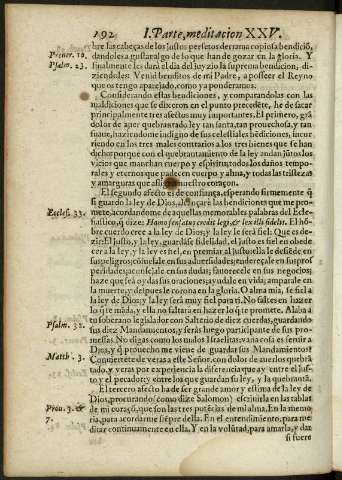 192 I. Parte, meditacion XXV.
bre las cabeças de los justos perfetos derrama copiosa bendiciõ,
Prouer. 10. dandoles a gustar algo de lo que han de gozar en la gloria. Y
Psalm. 23. finalmente les dara el dia del juyzio la suprema bendicion, di-
ziendoles: Venid benditos de mi Padre, a posseer el Reyno
que os tengo aparejado, como ya ponderamos.
Considerando estas bendiciones, y comparandolas con las
maldiciones que se dixeron en el punto precedẽte, he de sacar
principalmente tres afectos muy importantes. El primero, grã
dolor de auer quebrantado, ley tan santa, tan prouechosa, y tan
suaue, haziendome indigno de sus celestiales bẽdiciones, incur
riendo en los tres males contrarios a los tres bienes que se han
dicho: porque con el quebrantamiento de la ley andan jũtos los
vicios que manchan cuerpo y espiritu, todos los daños tempo-
rales y eternos que padecen cuerpo y alma, y todas las tristezas
y amarguras que afligen nuestro coraçon.
El segundo afecto es de confiança, esperando firmemente q̃
si guardo la ley de Dios, alcançare las bendiciones que me pro-
Eccles. 33. mete, acordandome de aquellas memorables palabras del Ecle-
siastico, q̃ dize: Homo sensatus credit legi, & lex illi fidelis. El hõ-
bre cuerdo cree a la ley de Dios; y la ley le será fiel: Que es de-
zir: El justo, y la ley, guardãse fidelidad, el justo es fiel en obede
cer a la ley, y la ley es fiel, en premiar al justo:
haze que sea oydas sus oraciones; ayudale en vida; amparale en
la muerte, y despues le corona en la gloria. O alma mia, se fiel a
la ley de Dios; y la ley será muy fiel para ti. No faltes en hazer
lo q̃ te mãda, y ella no faltará en hazer lo q̃ te promete. Alaba a
tu soberano legislador con Salterio de diez cuerdas, guardando
Psalm. 32. sus diez Mandamientos, y serás luego participante de sus pro-
messas. No digas como los malos Israelitas: vana cosa es seruir a
Dios, y q̃ prouecho me viene de guardar sus Mandamientos?
Matth. 3. Conuiertete de veras a este Señor con dolor de auerlos quebrã
tado, y veras por experiencia la diferencia que ay entre el jus-
to y el pecador; y entre los que guardan su ley, y la quebrantã.
El tercero afecto ha de ser grande amor y estima de la ley de
Prou. 3. & Dios, procurando (como dize Salomon) escriuirla en las tablas
7. de mi coraçõ, que son las tres potẽcias de mi alma. En la memo
ria, para acordarme siẽpre della. En el entendimiento, para me
ditar continuamente en ella. Y en la volũtad, para amarla, y dar
si fuere